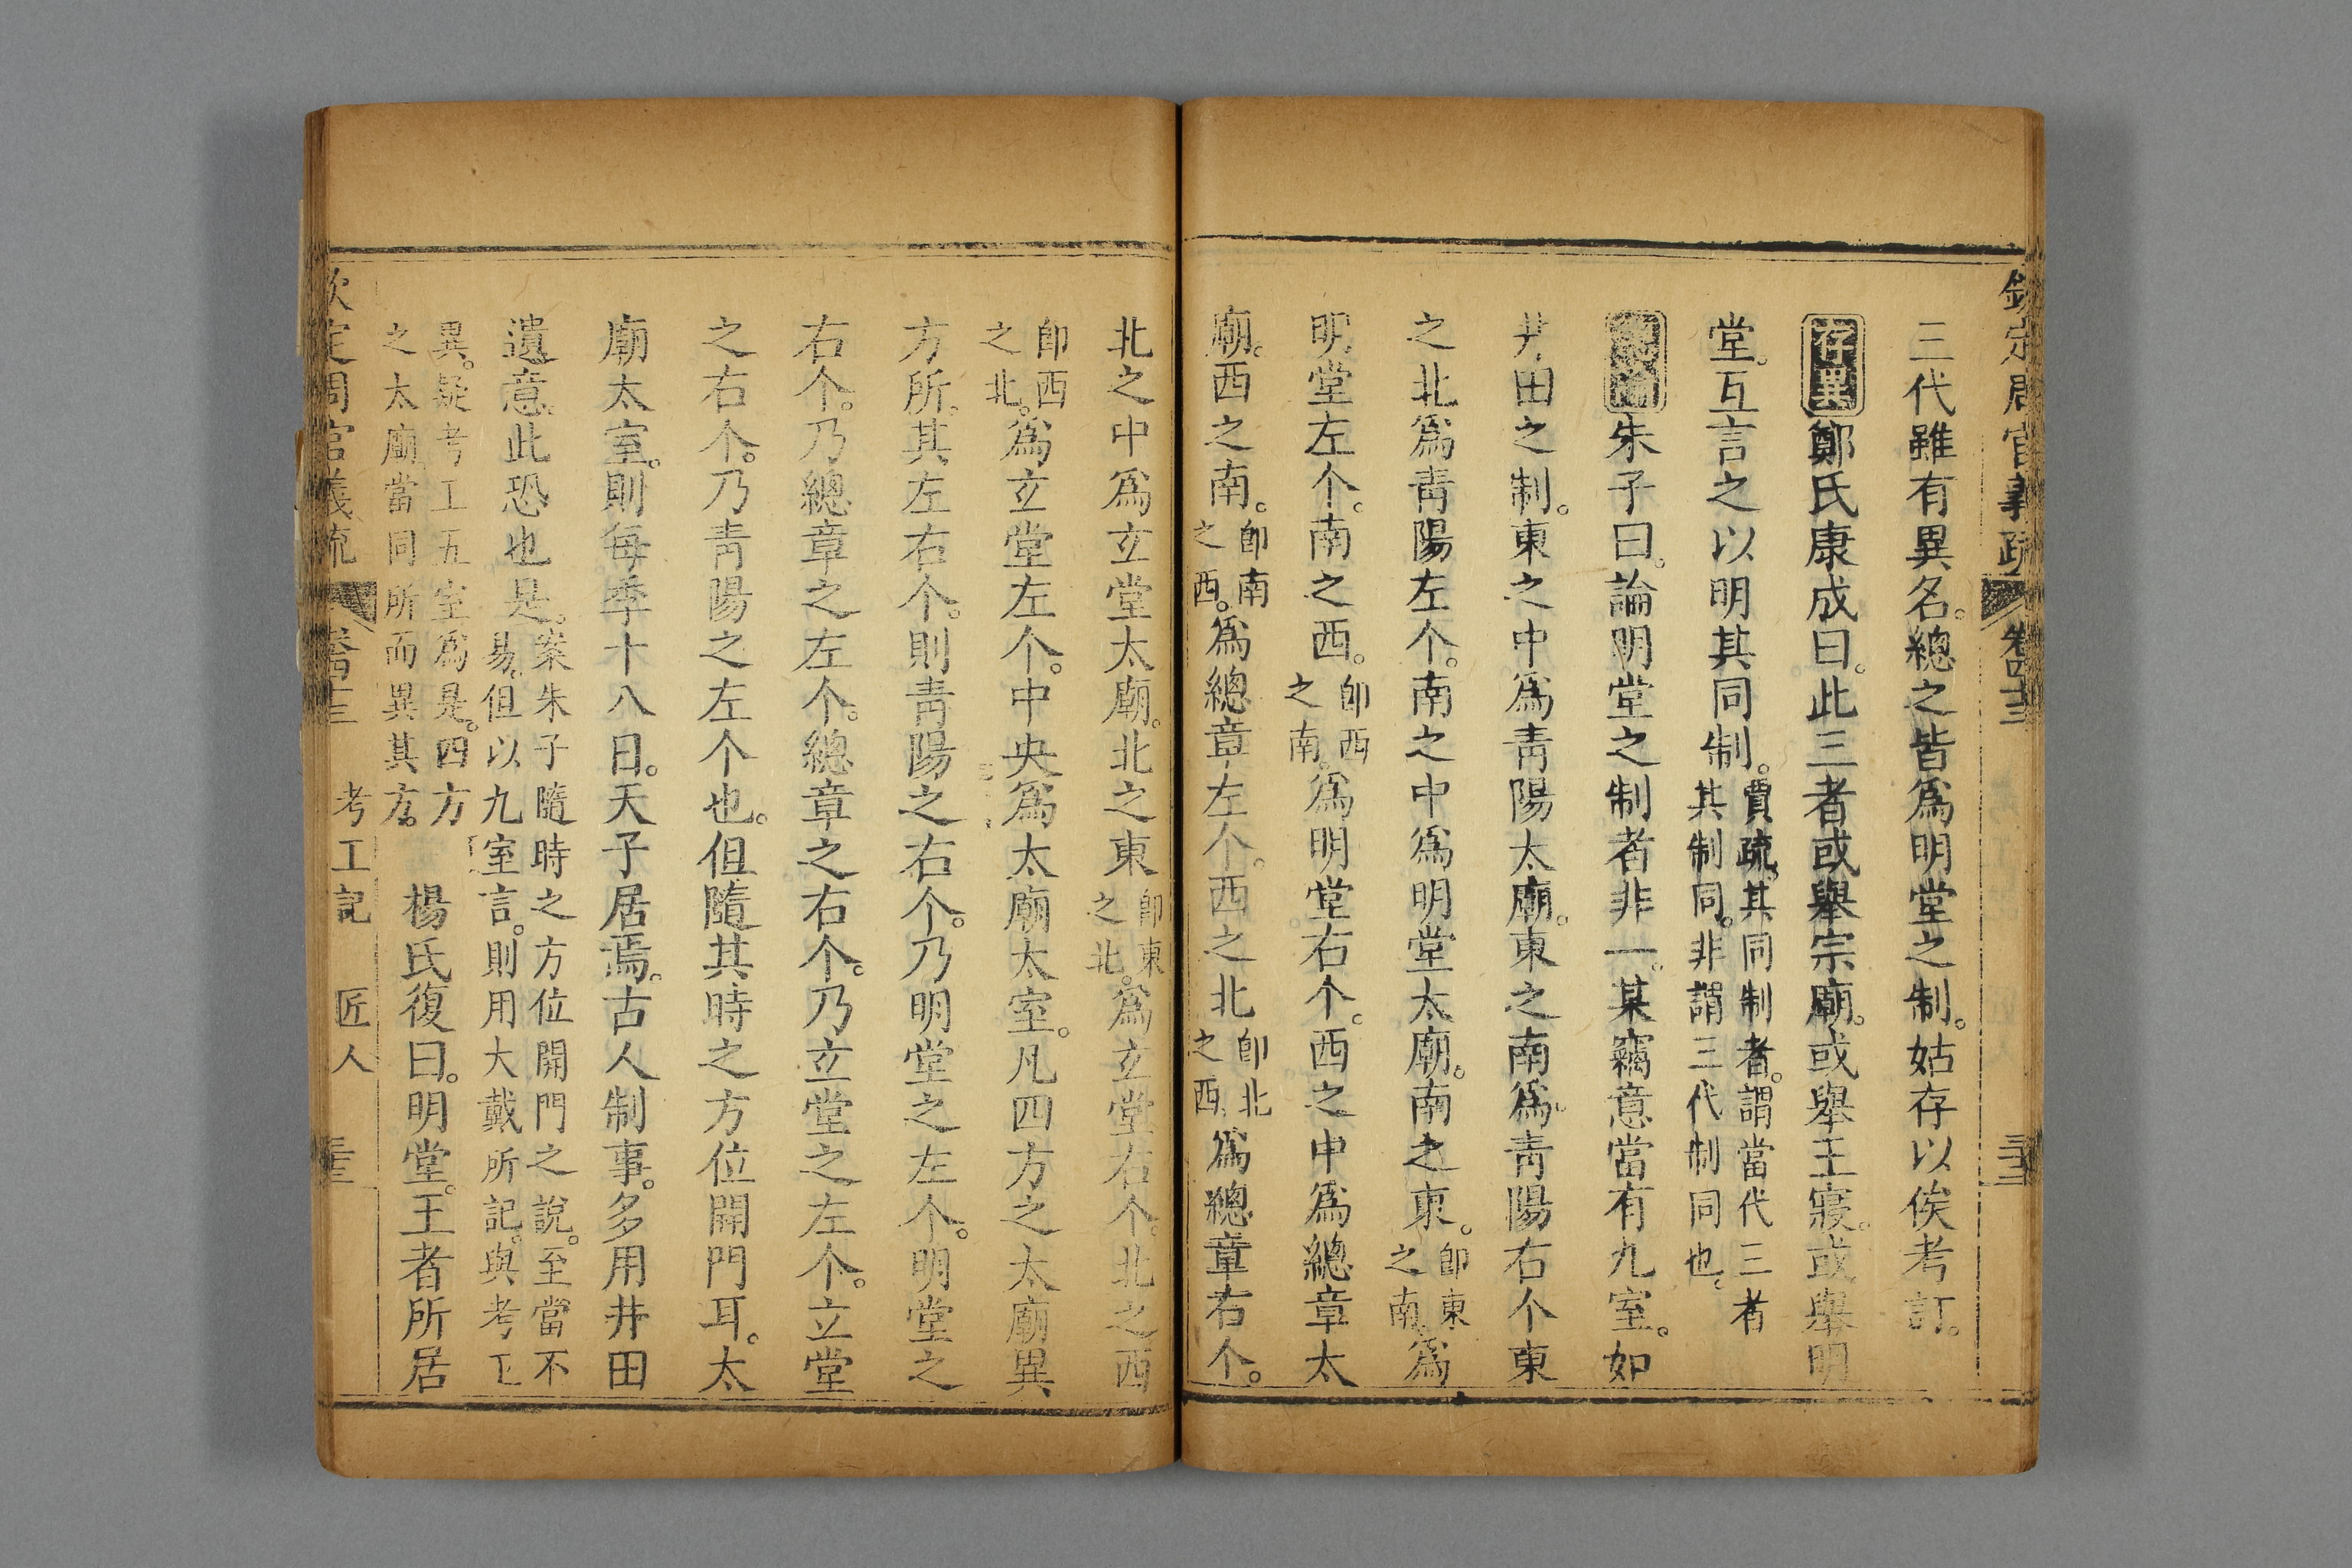 欽定周官義疏 卷四十三
三代雖有異名。總之皆爲明堂之制。姑存以俟考訂。
存異鄭氏康成曰。此三者或舉宗廟。或舉王寢。或舉明
堂。互言之以明其同制。賈疏。其同制者。謂當代三者其制同。非謂三代制同也。
總論朱子曰。論明堂之制者非一。某竊意當有九室。如
井田之制。東之中爲靑陽太廟。東之南爲靑陽右个東
之北爲靑陽左个。南之中爲明堂太廟。南之東。卽東之南。爲
明堂左个。南之西。卽西之南。爲明堂右个。西之中爲總章太
廟。西之南。卽南之西。爲總章左个。西之北卽北之西。爲總章右个。
北之中爲玄堂太廟。北之東卽東之北。爲玄堂右个。北之西
卽西之北。爲玄堂左个。中央爲太廟太室。凡四方之太廟異
方所。其左右个。則靑陽之右个。乃明堂之左个。明堂之
右个。乃總章之左个。總章之右个。乃玄堂之左个。玄堂
之右个。乃靑陽之左个也。但隨其時之方位開門耳。太
廟太室。則每季十八日。天子居焉。古人制事。多用井田
遺意。此恐也是。案朱子隨時之方位開門之說。至當不易。但以九室言。則用大戴所記。與考工
異。疑考工五室爲是。四方之太廟。當同所而異其方。 楊氏復曰。明堂。王者所居
欽定周官義疏 卷四十三 考工記 匠人